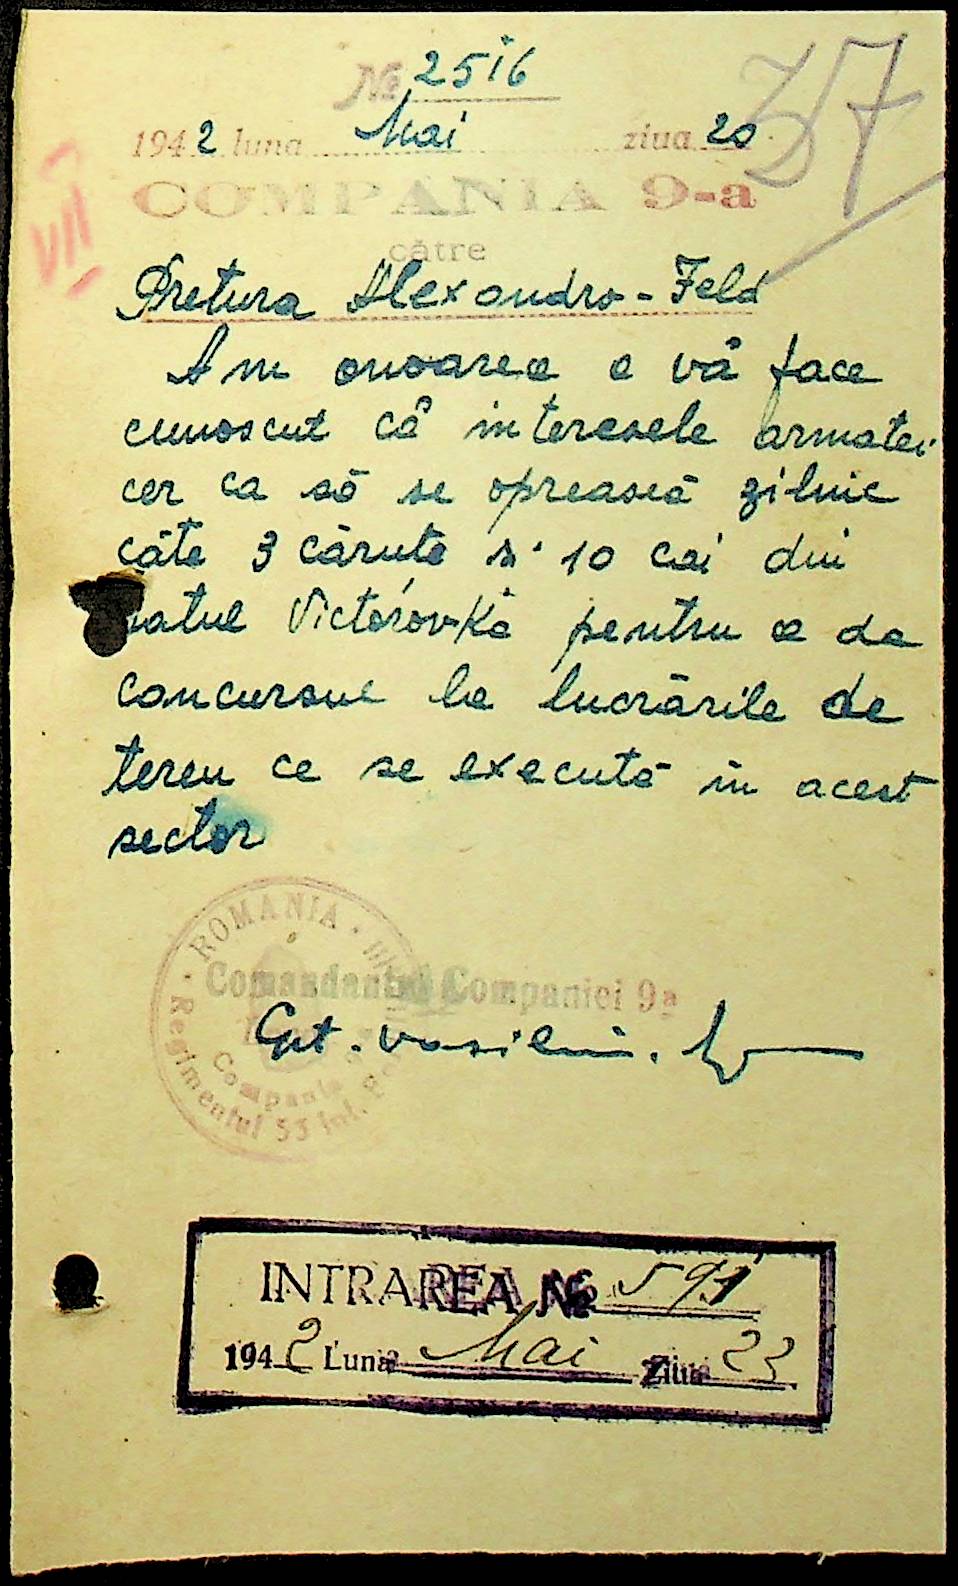 37
№ 2516
1942 luna Mai ziua 20
VII
COMPANIA 9-a
către
Pretura Alexandro-Feld
Am onoarea a vă face
cunoscut că interesele armatei
cer ca să se oprească zilnic
câte 3 cărute si 10 cai din
satul Victorovka pentru a da
concursul la lucrările de
teren ce se execută în acest
sector
ROMANIA
Comandantul Companiei 9a
Cpt. Vasiliu.
Compania
Regimentul 53 Inf.
INTRAREA № 591
1942 Luna Mai Ziua 23